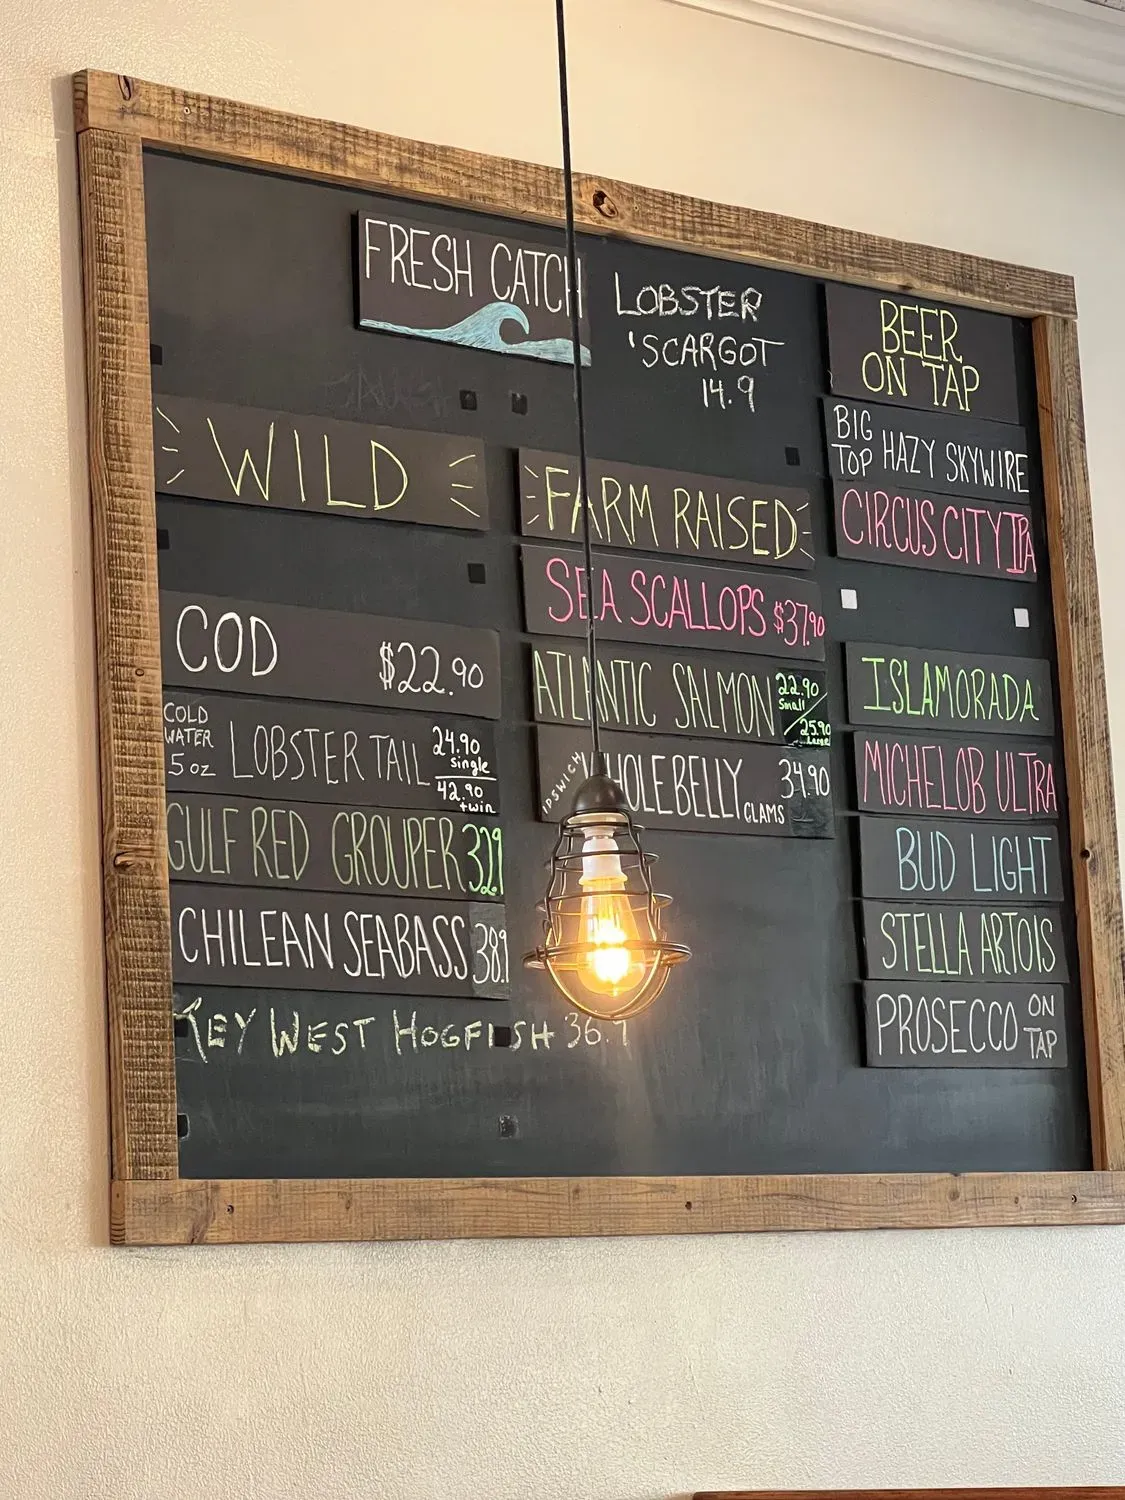 FRESH CATCH
LOBSTER
'SCARGOT
14.9
WILD
COD $22.90
COLD WATER 5 oz LOBSTER TAIL 24.90 single 42.90 twin
GULF RED GROUPER 32.9
CHILEAN SEABASS 38.9
KEY WEST HOGFISH 36.9
FARM RAISED
SEA SCALLOPS $37.90
ATLANTIC SALMON 22.90 small / 25.90 large
IPSWICH WHOLE BELLY CLAMS 34.90
BEER
ON TAP
BIG TOP HAZY SKYWIRE
CIRCUS CITY IPA
ISLAMORADA
MICHELOB ULTRA
BUD LIGHT
STELLA ARTOIS
PROSECCO ON TAP